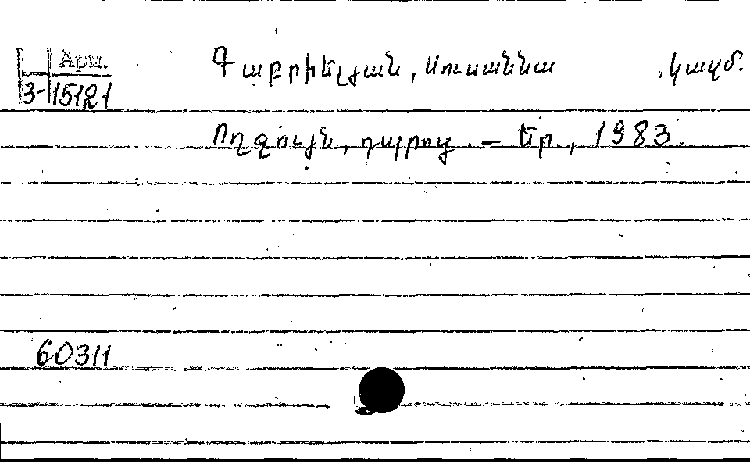 Արա.
3-15121
Գաբրիելյան, Սուսաննա , կազմ.
Ողջույն, դպրոց. – Եր., 1983.
60311